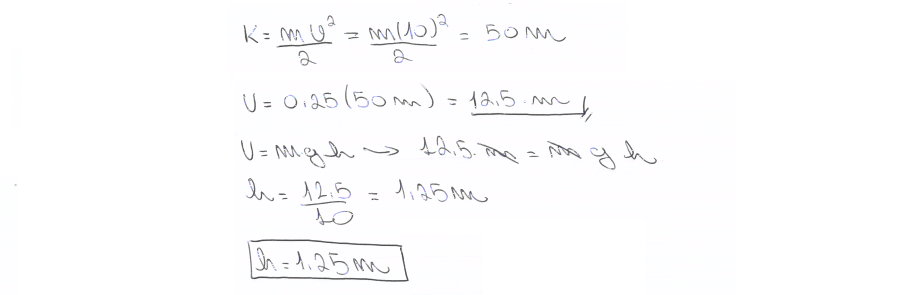 K = mv²/2 = m(10)²/2 = 50m
U = 0.25(50m) = 12.5.m
U = m.g.h → 12.5.m = m g h
h = 12.5/10 = 1.25m
h = 1.25m